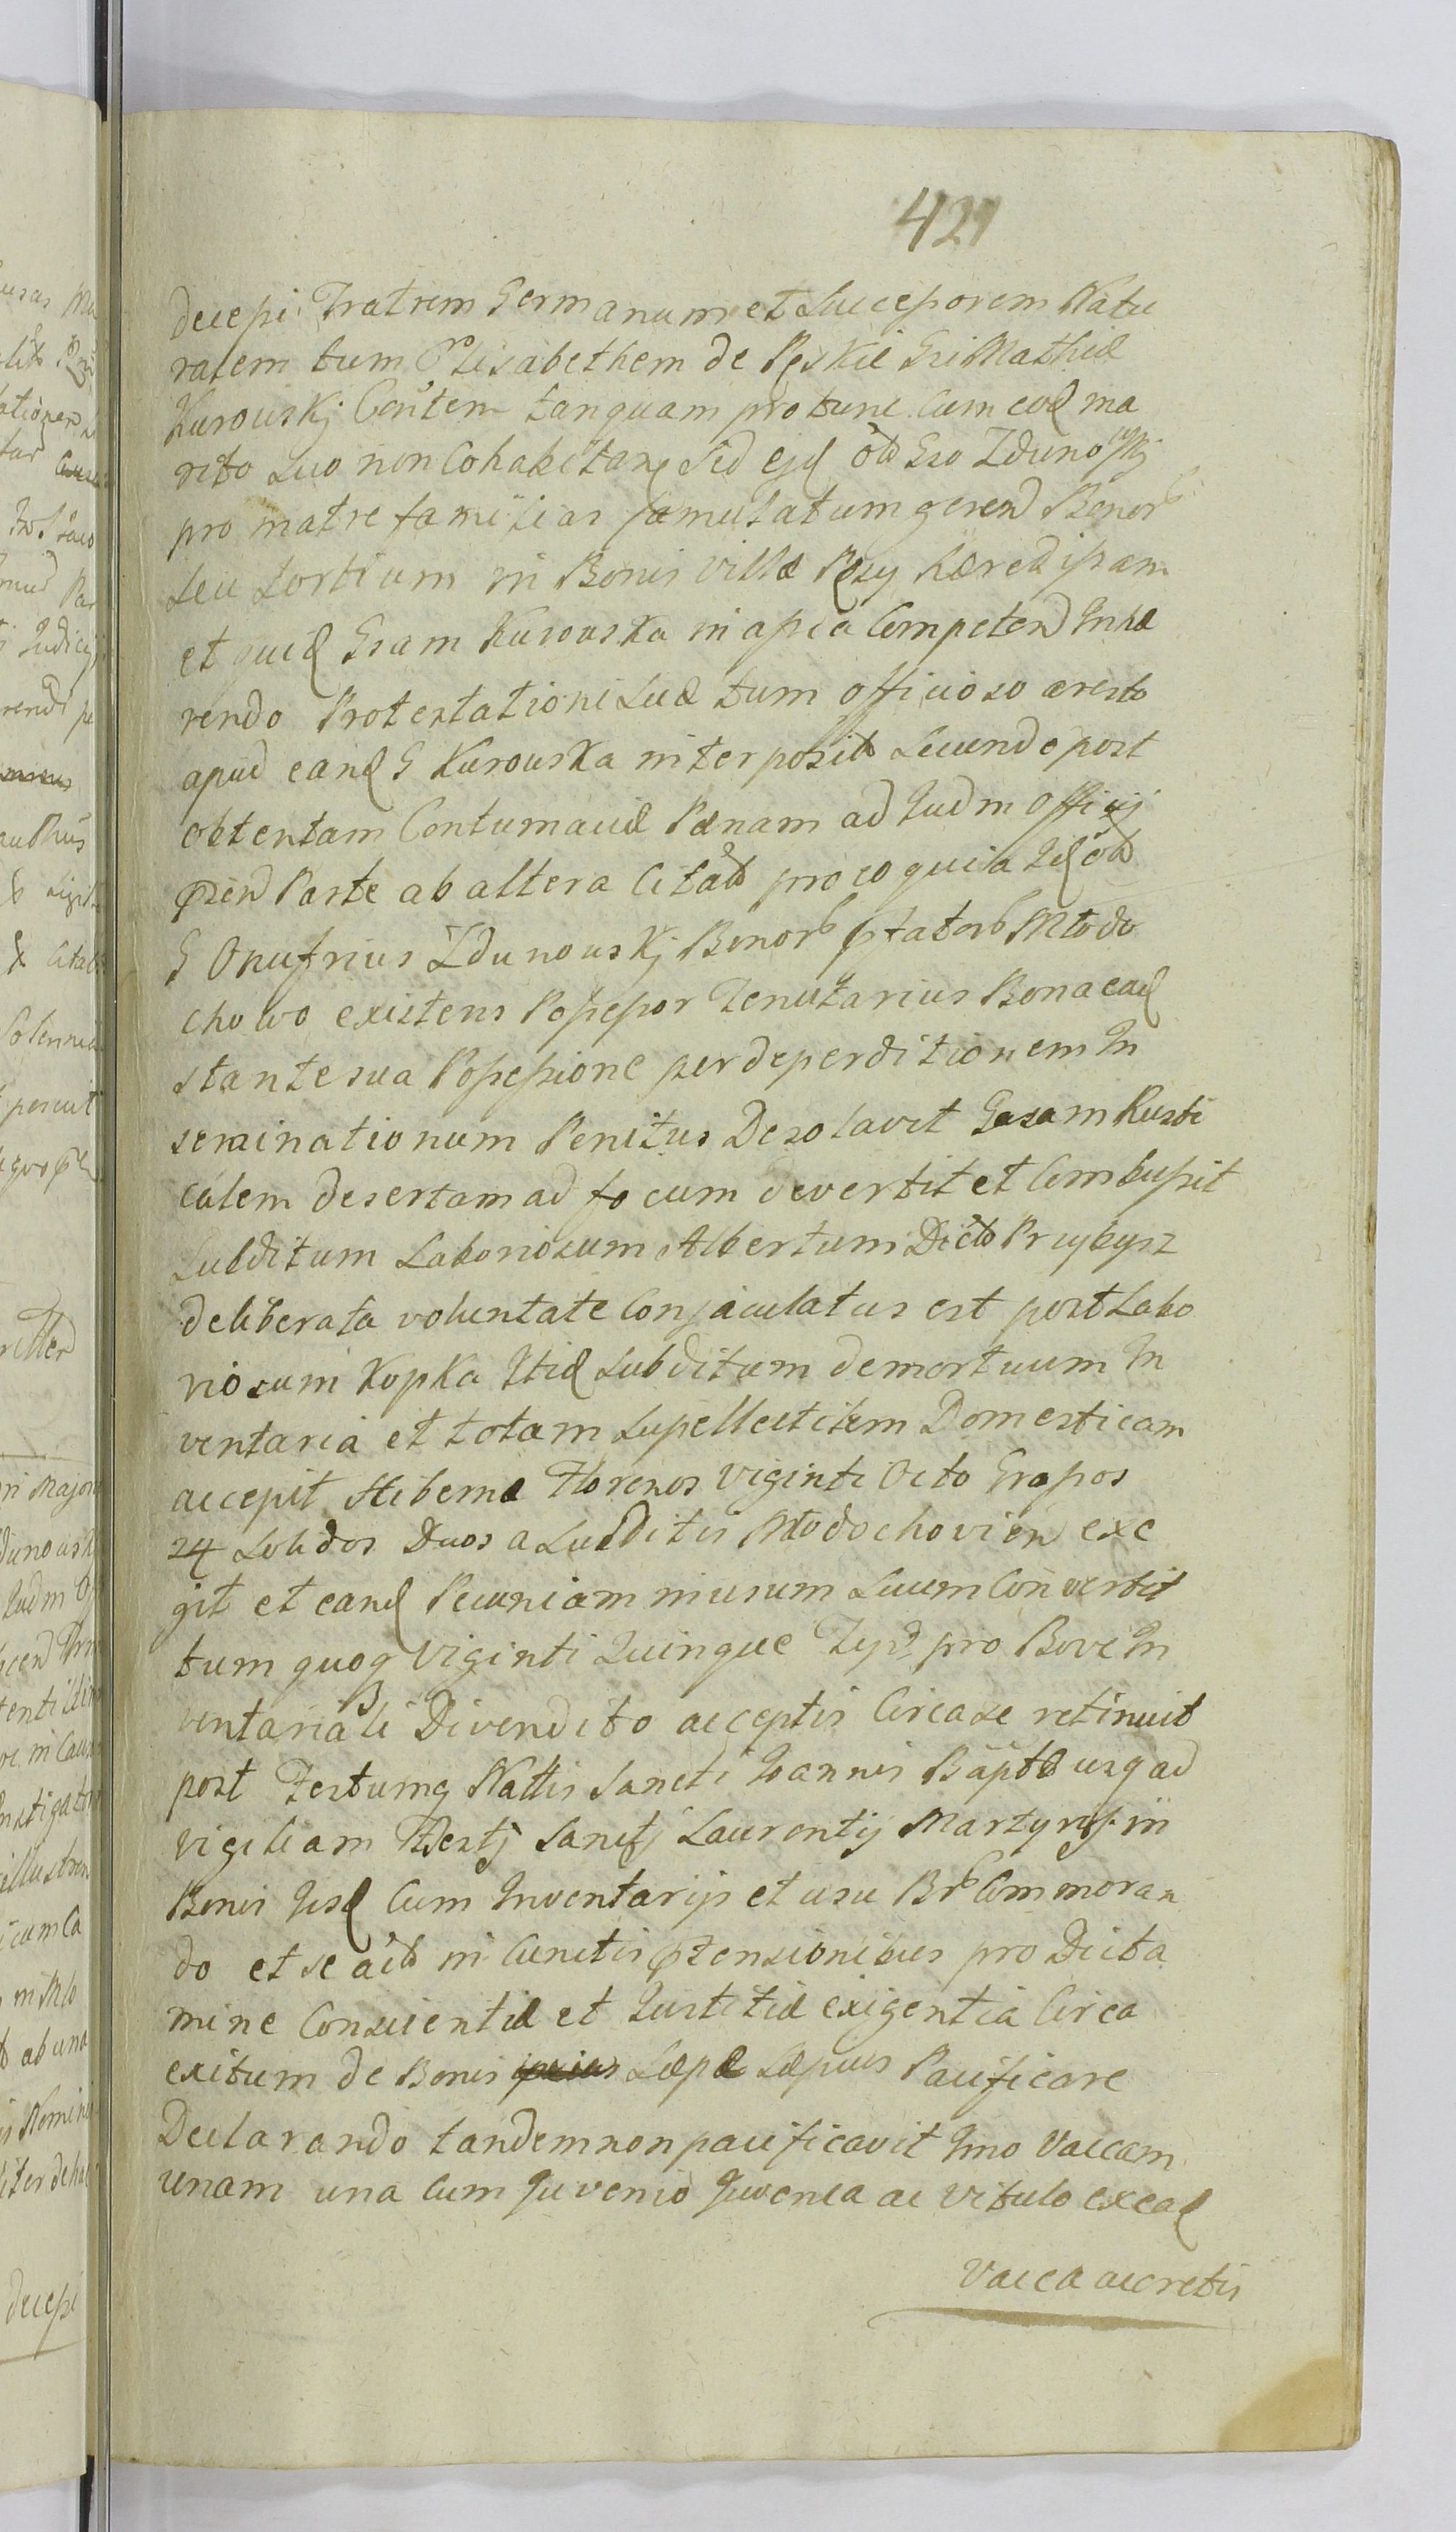 421
decessi Fratrem Germanum et Successorem Natu
ralem tum Elisabethem de Pęskie Gsi Mathiæ
Kurowskj Contem tanquam pro tunc cum eod ma
rito suo non Cohabitan sed ejd ob Gso Zdunowskj
pro matre familias famulatum geren Bonor
seu sortium in Bonis villæ Pęsy hæred ipsam
et quid Gsam Kurowska in assa Competen Inhæ
rendo Protestationi suæ tum officioso aresto
apud eand G Kurowska interposit secundo post
obtentam Contumaciæ Pænam ad Judm officij
pzen Parte ab altera Citat pro eo quia Id ob
G Onufrius Zdunowskj Bonor ptator Młodo
chowo existens Possessor Tenutarius Bona ead
stante sua Possessione per deperditionem In
seminationum Penitus Desolavit Gasam Rusti
calem desertam ad focum devertit et Combussit
Subditum Laboriosum Albertum Dict Przybysz
deliberata voluntate Conjaculatus est post Labo
riosum Kopka Itid Subditum demortuum In
ventaria et totam Supellectilem Domesticam
accepit Hibernæ Florenos viginti Octo Grossos
24 Solidos Duos a Subditis Młodochovien exe
git et eand Pecuniam in usum suum Convertit
tum quoq viginti Quinque Tyn pro Bove In
ventariali Divendito acceptis Circa se retinuit
post Festumq Nattis Sancti Joannis Baptæ usq ad
vigiliam Festj Sanctj Laurentij Martyris in
Bonis Iisd Cum Inventarijs et usu Br Commoran
do et se act in Cunctis ptensionibus pro Dicta
mine Conscientiæ et Justitiæ exigentia Circa
exitum de Bonis Sæpe Sæpius Pacificare
Declarando tandem non pacificavit Imo Vaccam
unam una Cum Juvenco Juvenca ac vitulo ex ead
Vacca accretis